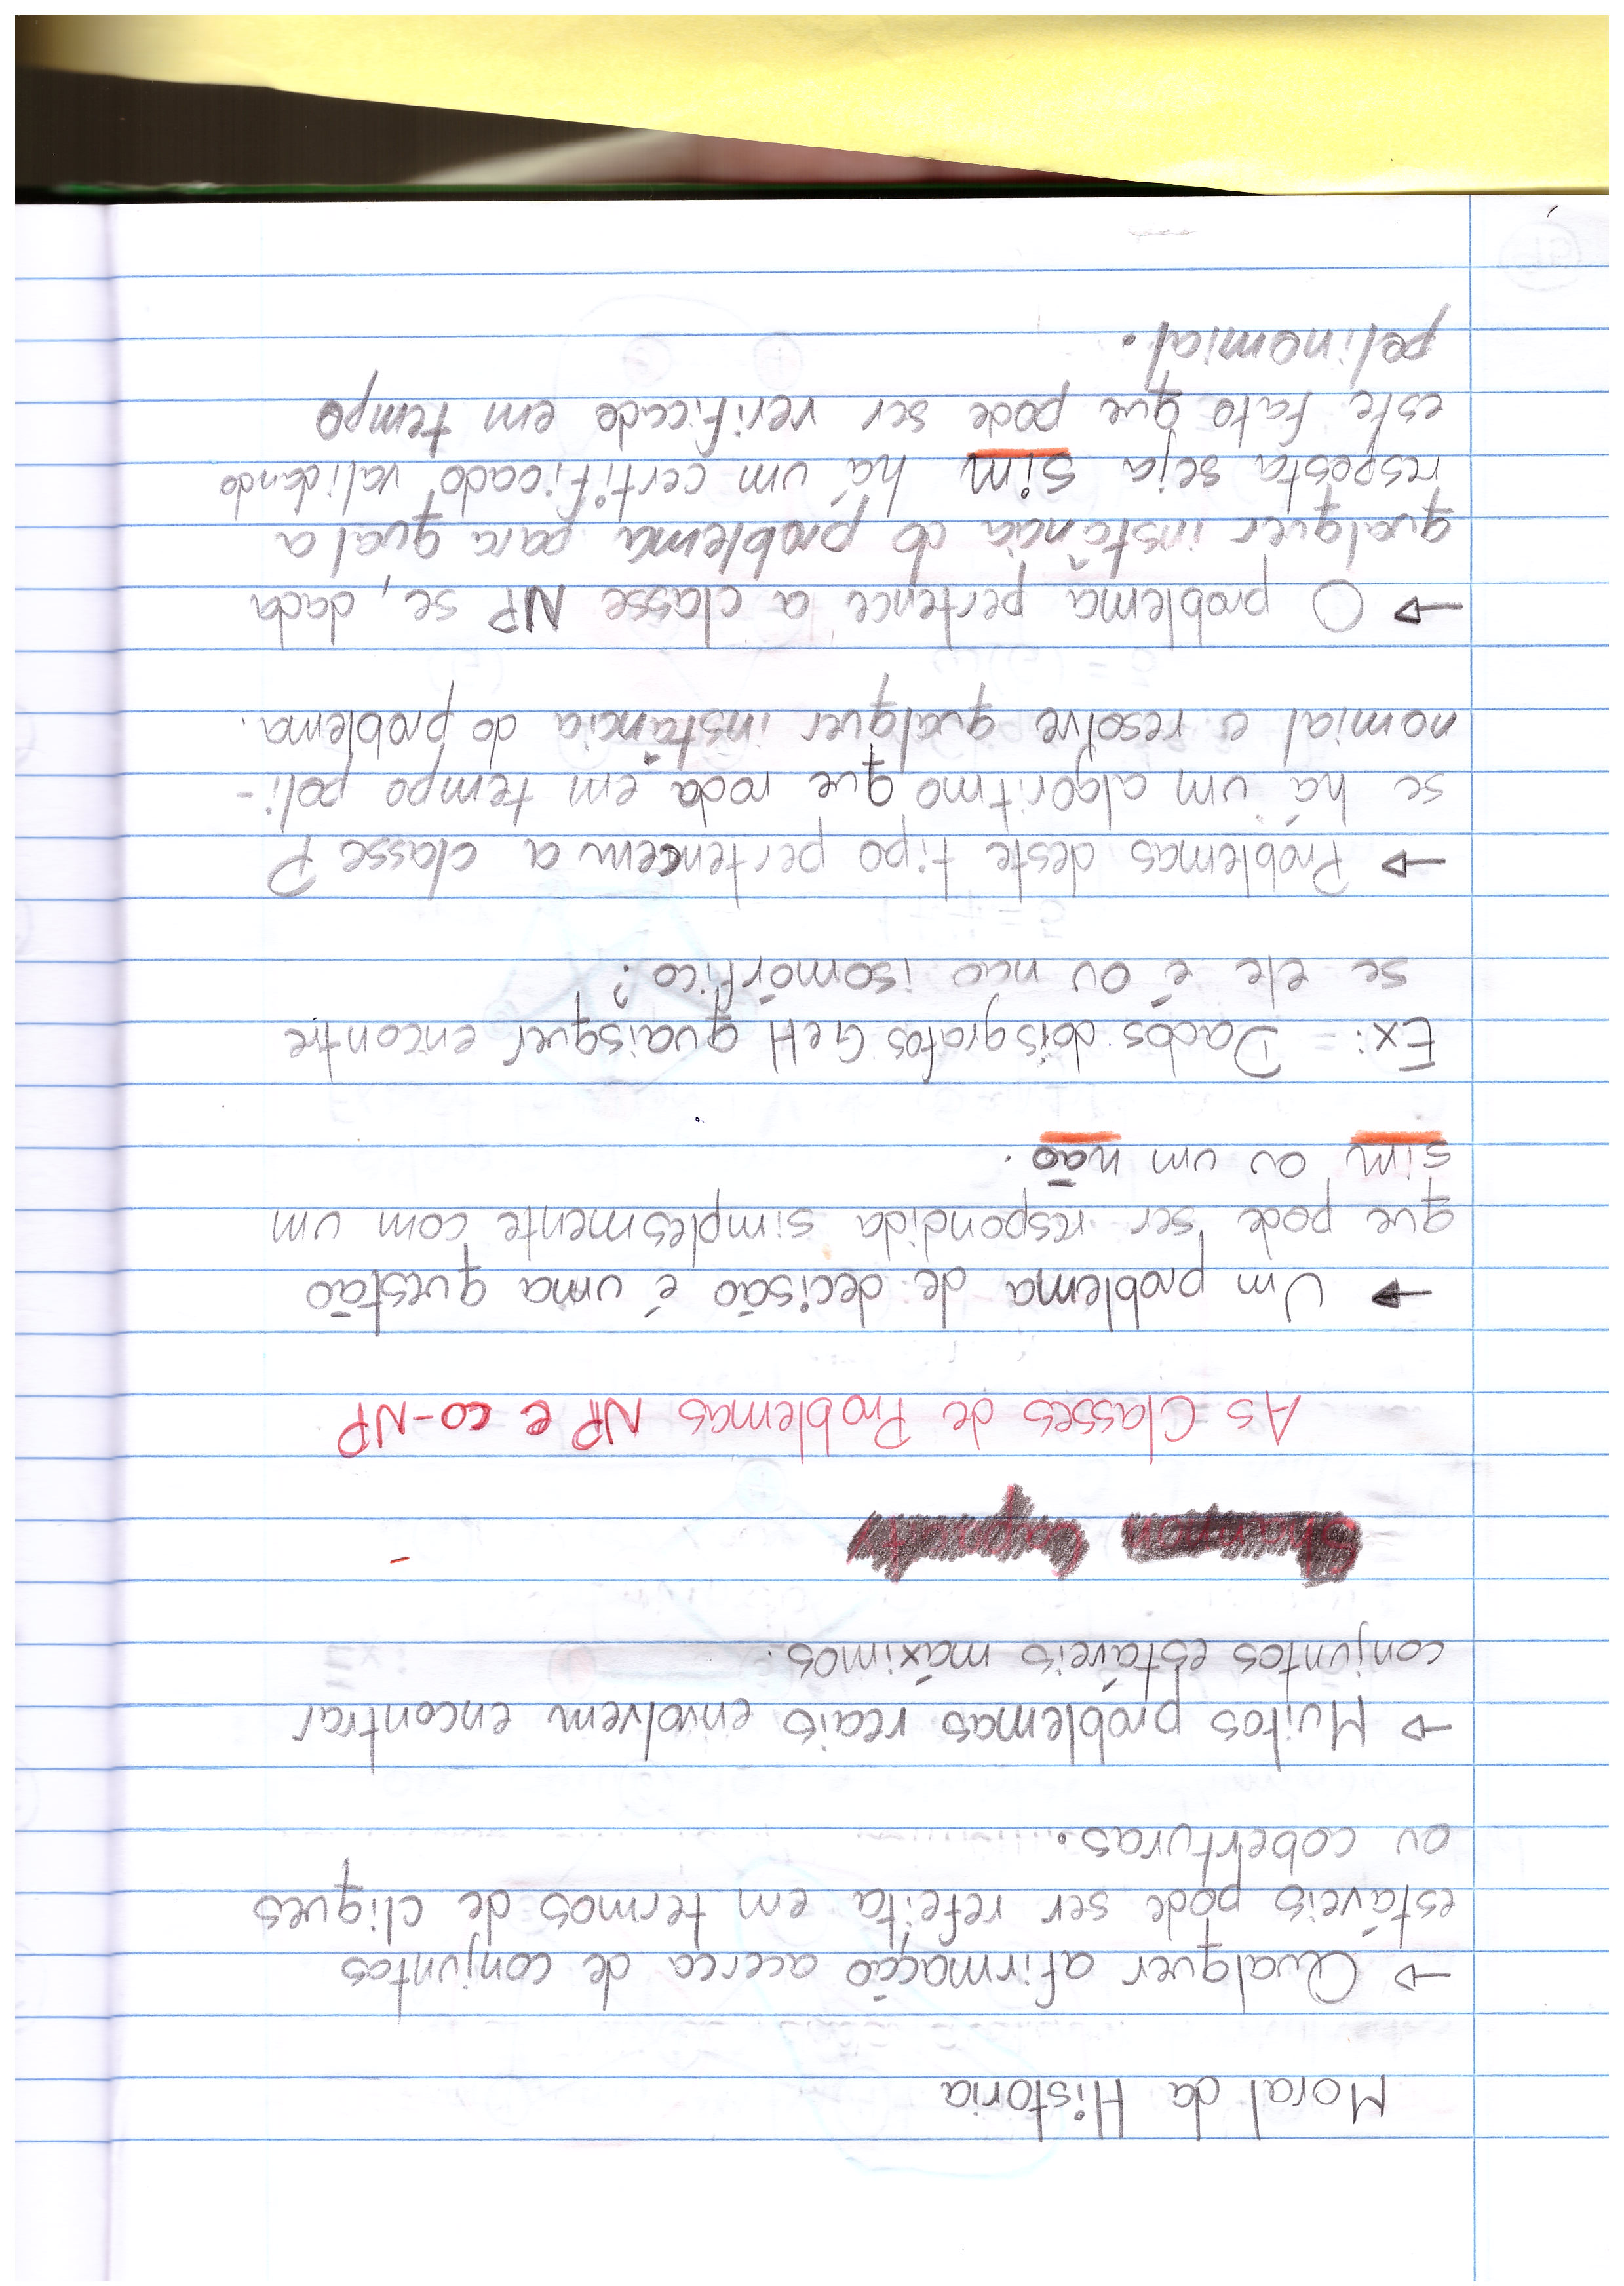 Moral da Historia
→ Qualquer afirmação acerca de conjuntos
estáveis pode ser refeita em termos de cliques
ou coberturas.
→ Muitos problemas reais envolvem encontrar
conjuntos estáveis máximos.
As Classes de Problemas NP e co-NP
→ Um problema de decisão é uma questão
que pode ser respondida simplesmente com um
sim ou um não.
Ex: = Dados dois grafos G e H quaisquer encontre
se ele é ou não isomórfico?
→ Problemas deste tipo pertencem a classe P
se há um algoritmo que roda em tempo poli-
nomial e resolve qualquer instância do problema.
→ O problema pertence a classe NP se, dada
qualquer instância do problema para qual a
resposta seja sim há um certificado validando
este fato que pode ser verificado em tempo
polinomial.